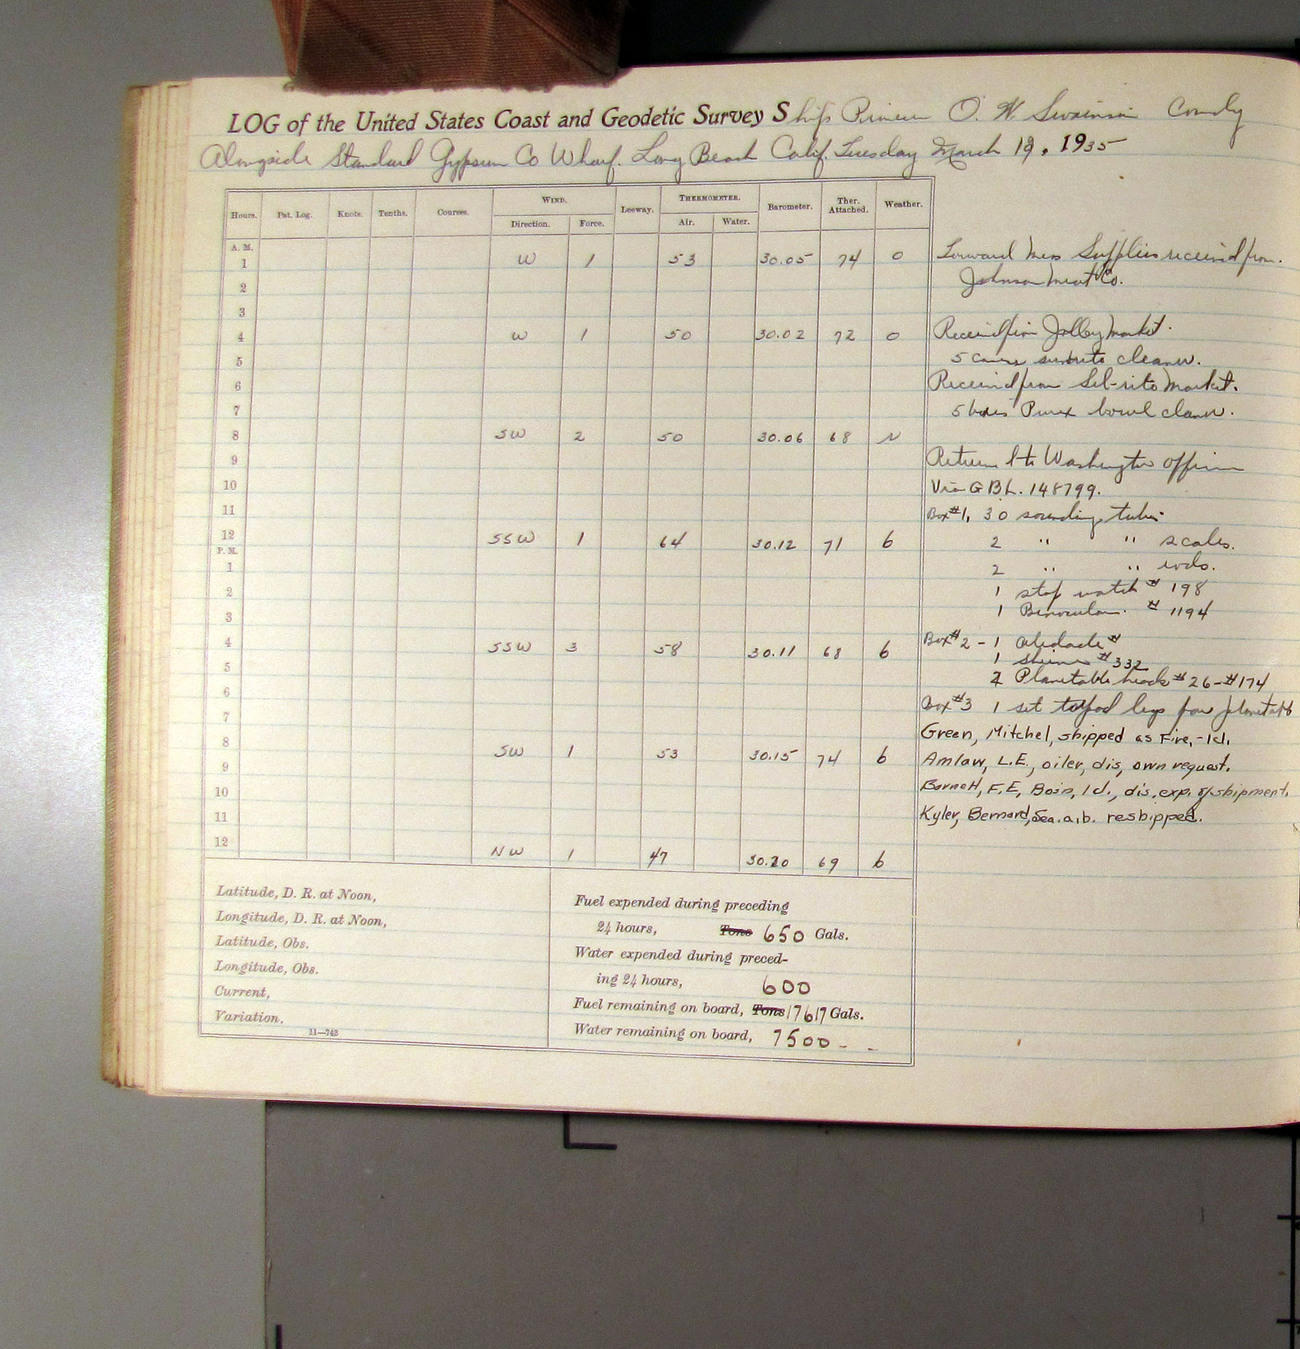 LOG of the United States Coast and Geodetic Survey Ship Pioneer O. W. Swainson Comdg
Alongside Standard Gypsum Co Wharf. Long Beach Calif. Tuesday March 1935
Hours. Pat. Log. Knots. Tenths. Courses. WIND. Leeway. THERMOMETER. Barometer. Ther. Attached. Weather.
Direction. Force. Air. Water.
A. M.
1 W 1 53 30.05 74 0
2
3
4 W 1 50 30.02 72 0
5
6
7
8 SW 2 50 30.06 68
9
10
11
12 SSW 1 64 30.12 71 b
P. M.
1
2
3
4 SSW 3 58 30.11 68 b
5
6
7
8 SW 1 53 30.15 74 b
9
10
11
12 NW 1 47 30.20 69 b
Mess Supplies received from
Johnson Meat Co.
Received from Jolley Market.
5 cleaner.
Received from Market.
5 Purex bowl cleaner.
Return to Washington office
Via G B L. 148799.
Box #1, 30 sounding tubes
2 " " scales.
2 " " rods.
1 stop watch # 198
1 Binocular. # 1194
Box #2 - 1 alidade #
1 #332
2 Planetable heads #26-#174
Box #3 1 set tripod legs for planetable
Green, Mitchel, shipped as Fire,-1d.
Amlaw, L.E., oiler, dis, own request.
Barnett, F.E, Bosn, 1d., dis. exp. of shipment.
Kyler, Bernard, Sea. a.b. reshipped.
Latitude, D. R. at Noon,
Longitude, D. R. at Noon,
Latitude, Obs.
Longitude, Obs.
Current,
Variation.
11—743
Fuel expended during preceding
24 hours, Tons 650 Gals.
Water expended during preced-
ing 24 hours, 600
Fuel remaining on board, Tons 17617 Gals.
Water remaining on board, 7500 - -